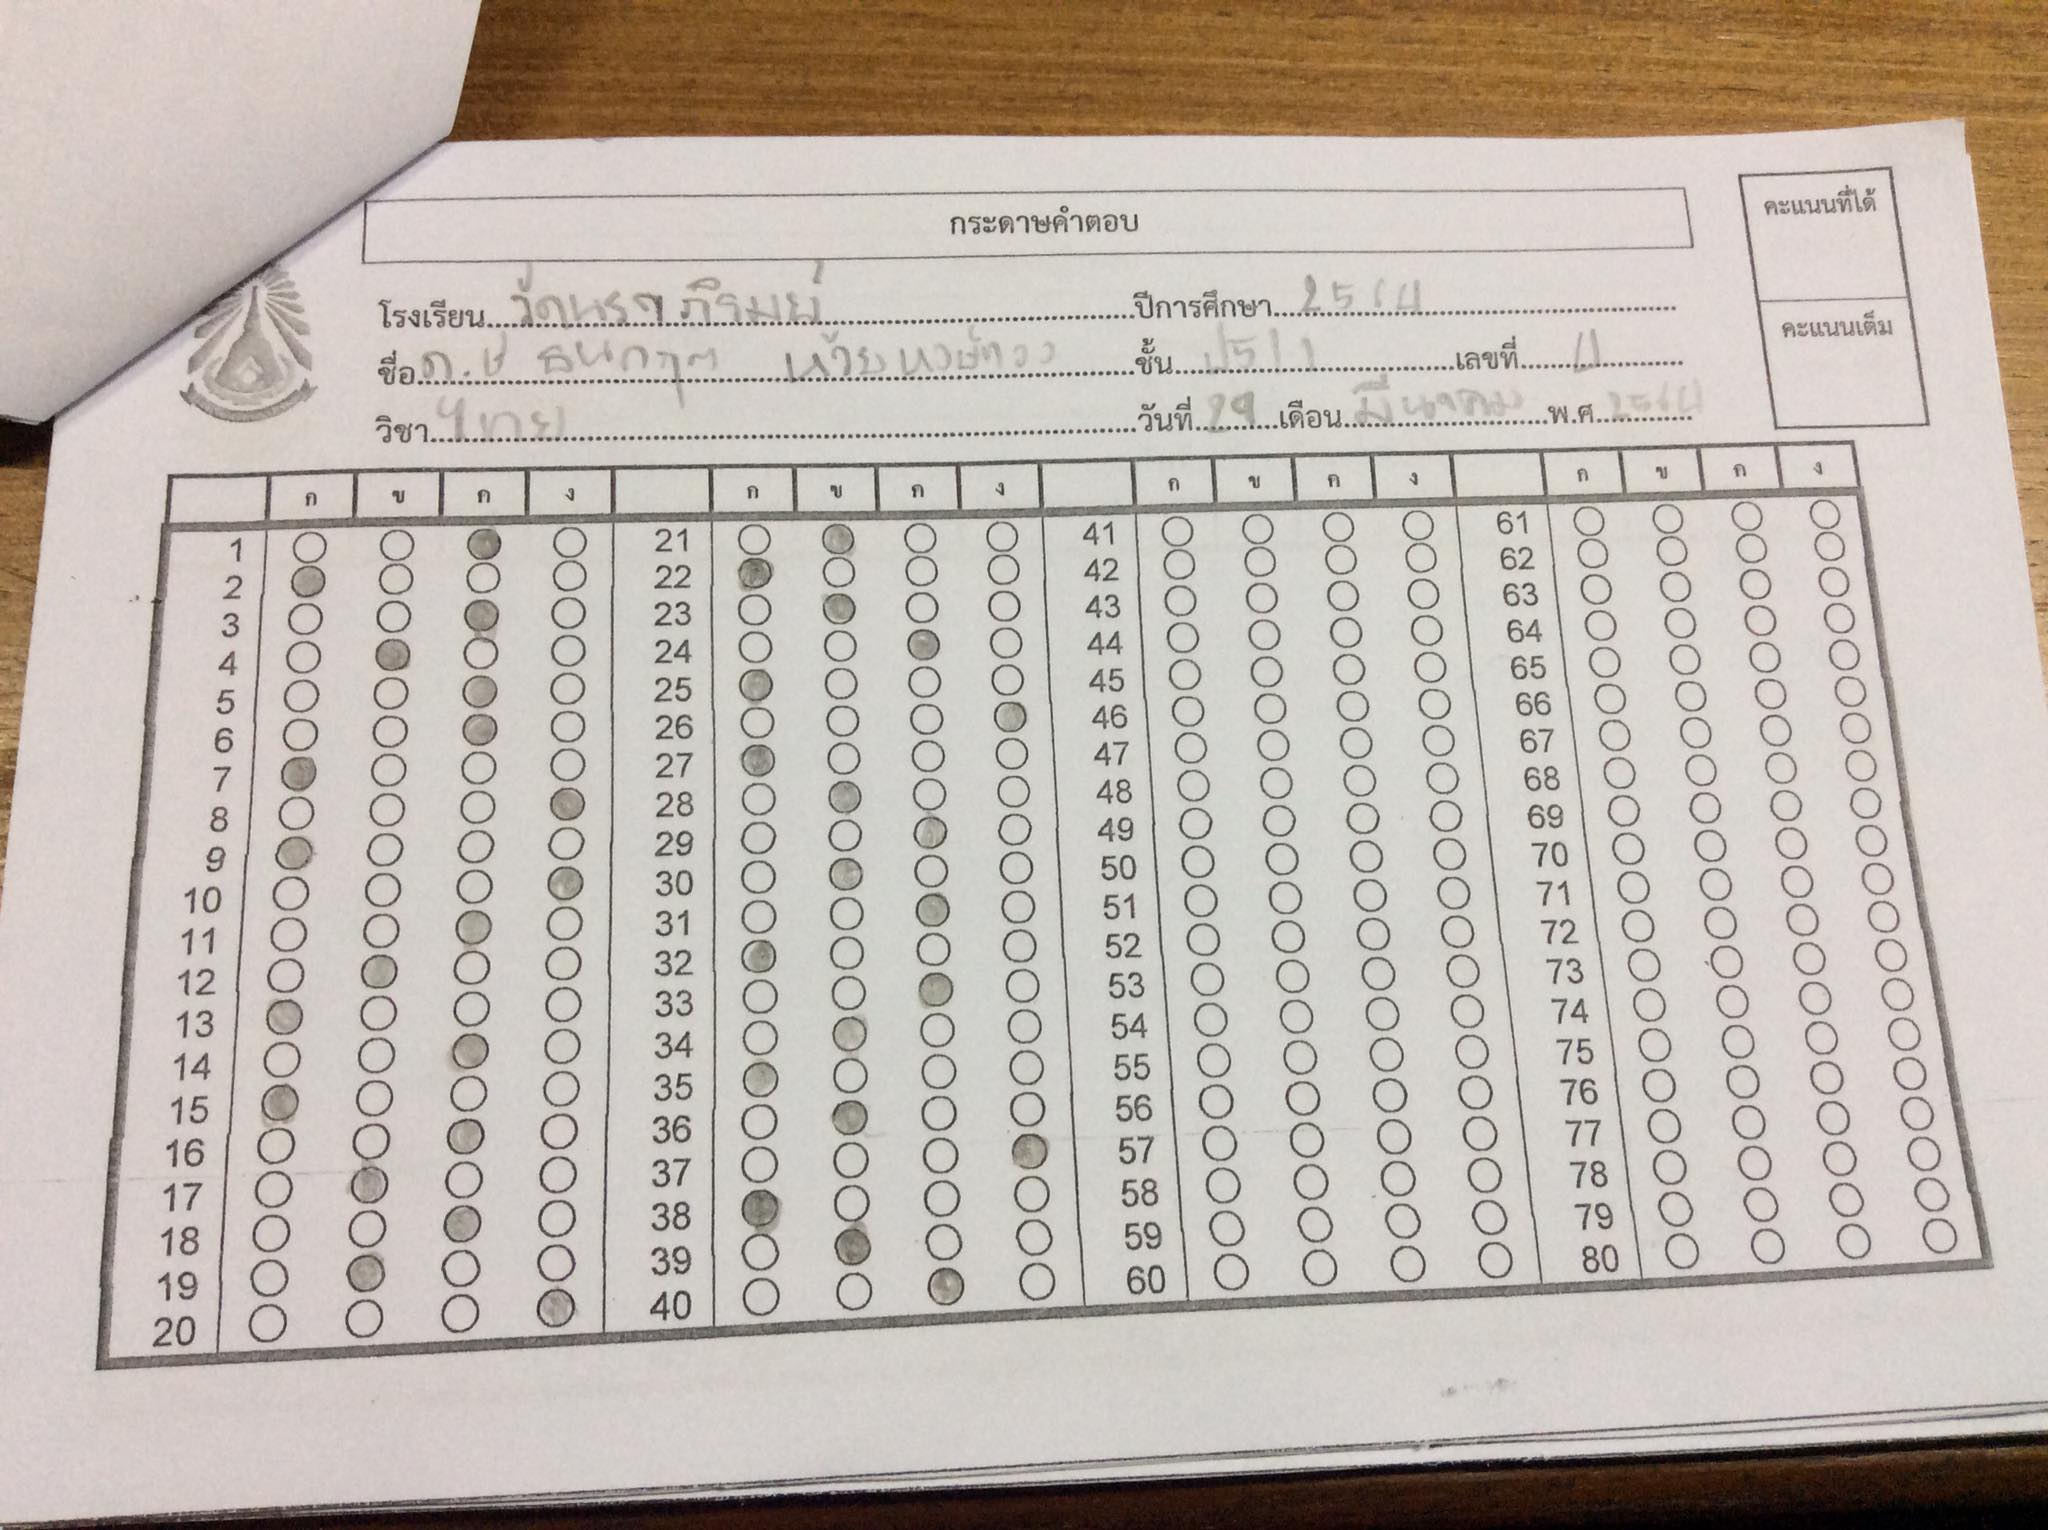 กระดาษคำตอบ
คะแนนที่ได้
โรงเรียน ปีการศึกษา 2564
ชื่อ ด.ช ธนกฤต ห้วยหงษ์ทอง ชั้น เลขที่
คะแนนเต็ม
วิชา ไทย วันที่ 29 เดือน มีนาคม พ.ศ. 2564
ก ข ค ง ก ข ค ง ก ข ค ง ก ข ค ง
1 21 41 61
2 22 42 62
3 23 43 63
4 24 44 64
5 25 45 65
6 26 46 66
7 27 47 67
8 28 48 68
9 29 49 69
10 30 50 70
11 31 51 71
12 32 52 72
13 33 53 73
14 34 54 74
15 35 55 75
16 36 56 76
17 37 57 77
18 38 58 78
19 39 59 79
20 40 60 80